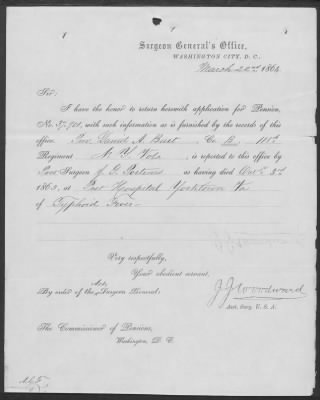 Surgeon General's Office,
WASHINGTON CITY, D. C.
March 22nd 1864
Sir:
I have the honor to return herewith application for Pension,
No. 37,701, with such information as is furnished by the records of this
office. A. Burt, Co. B, 111th
Regiment N. Y. Vols, is reported to this office by
Post Surgeon as having died Oct 2d
1863, at Post Hospital Yorktown Va
of Typhoid Fever
Very respectfully,
Your obedient servant,
Act.
By order of the Surgeon General:
J J Woodward
Asst. Surg. U. S. A.
The Commissioner of Pensions,
Washington, D. C.